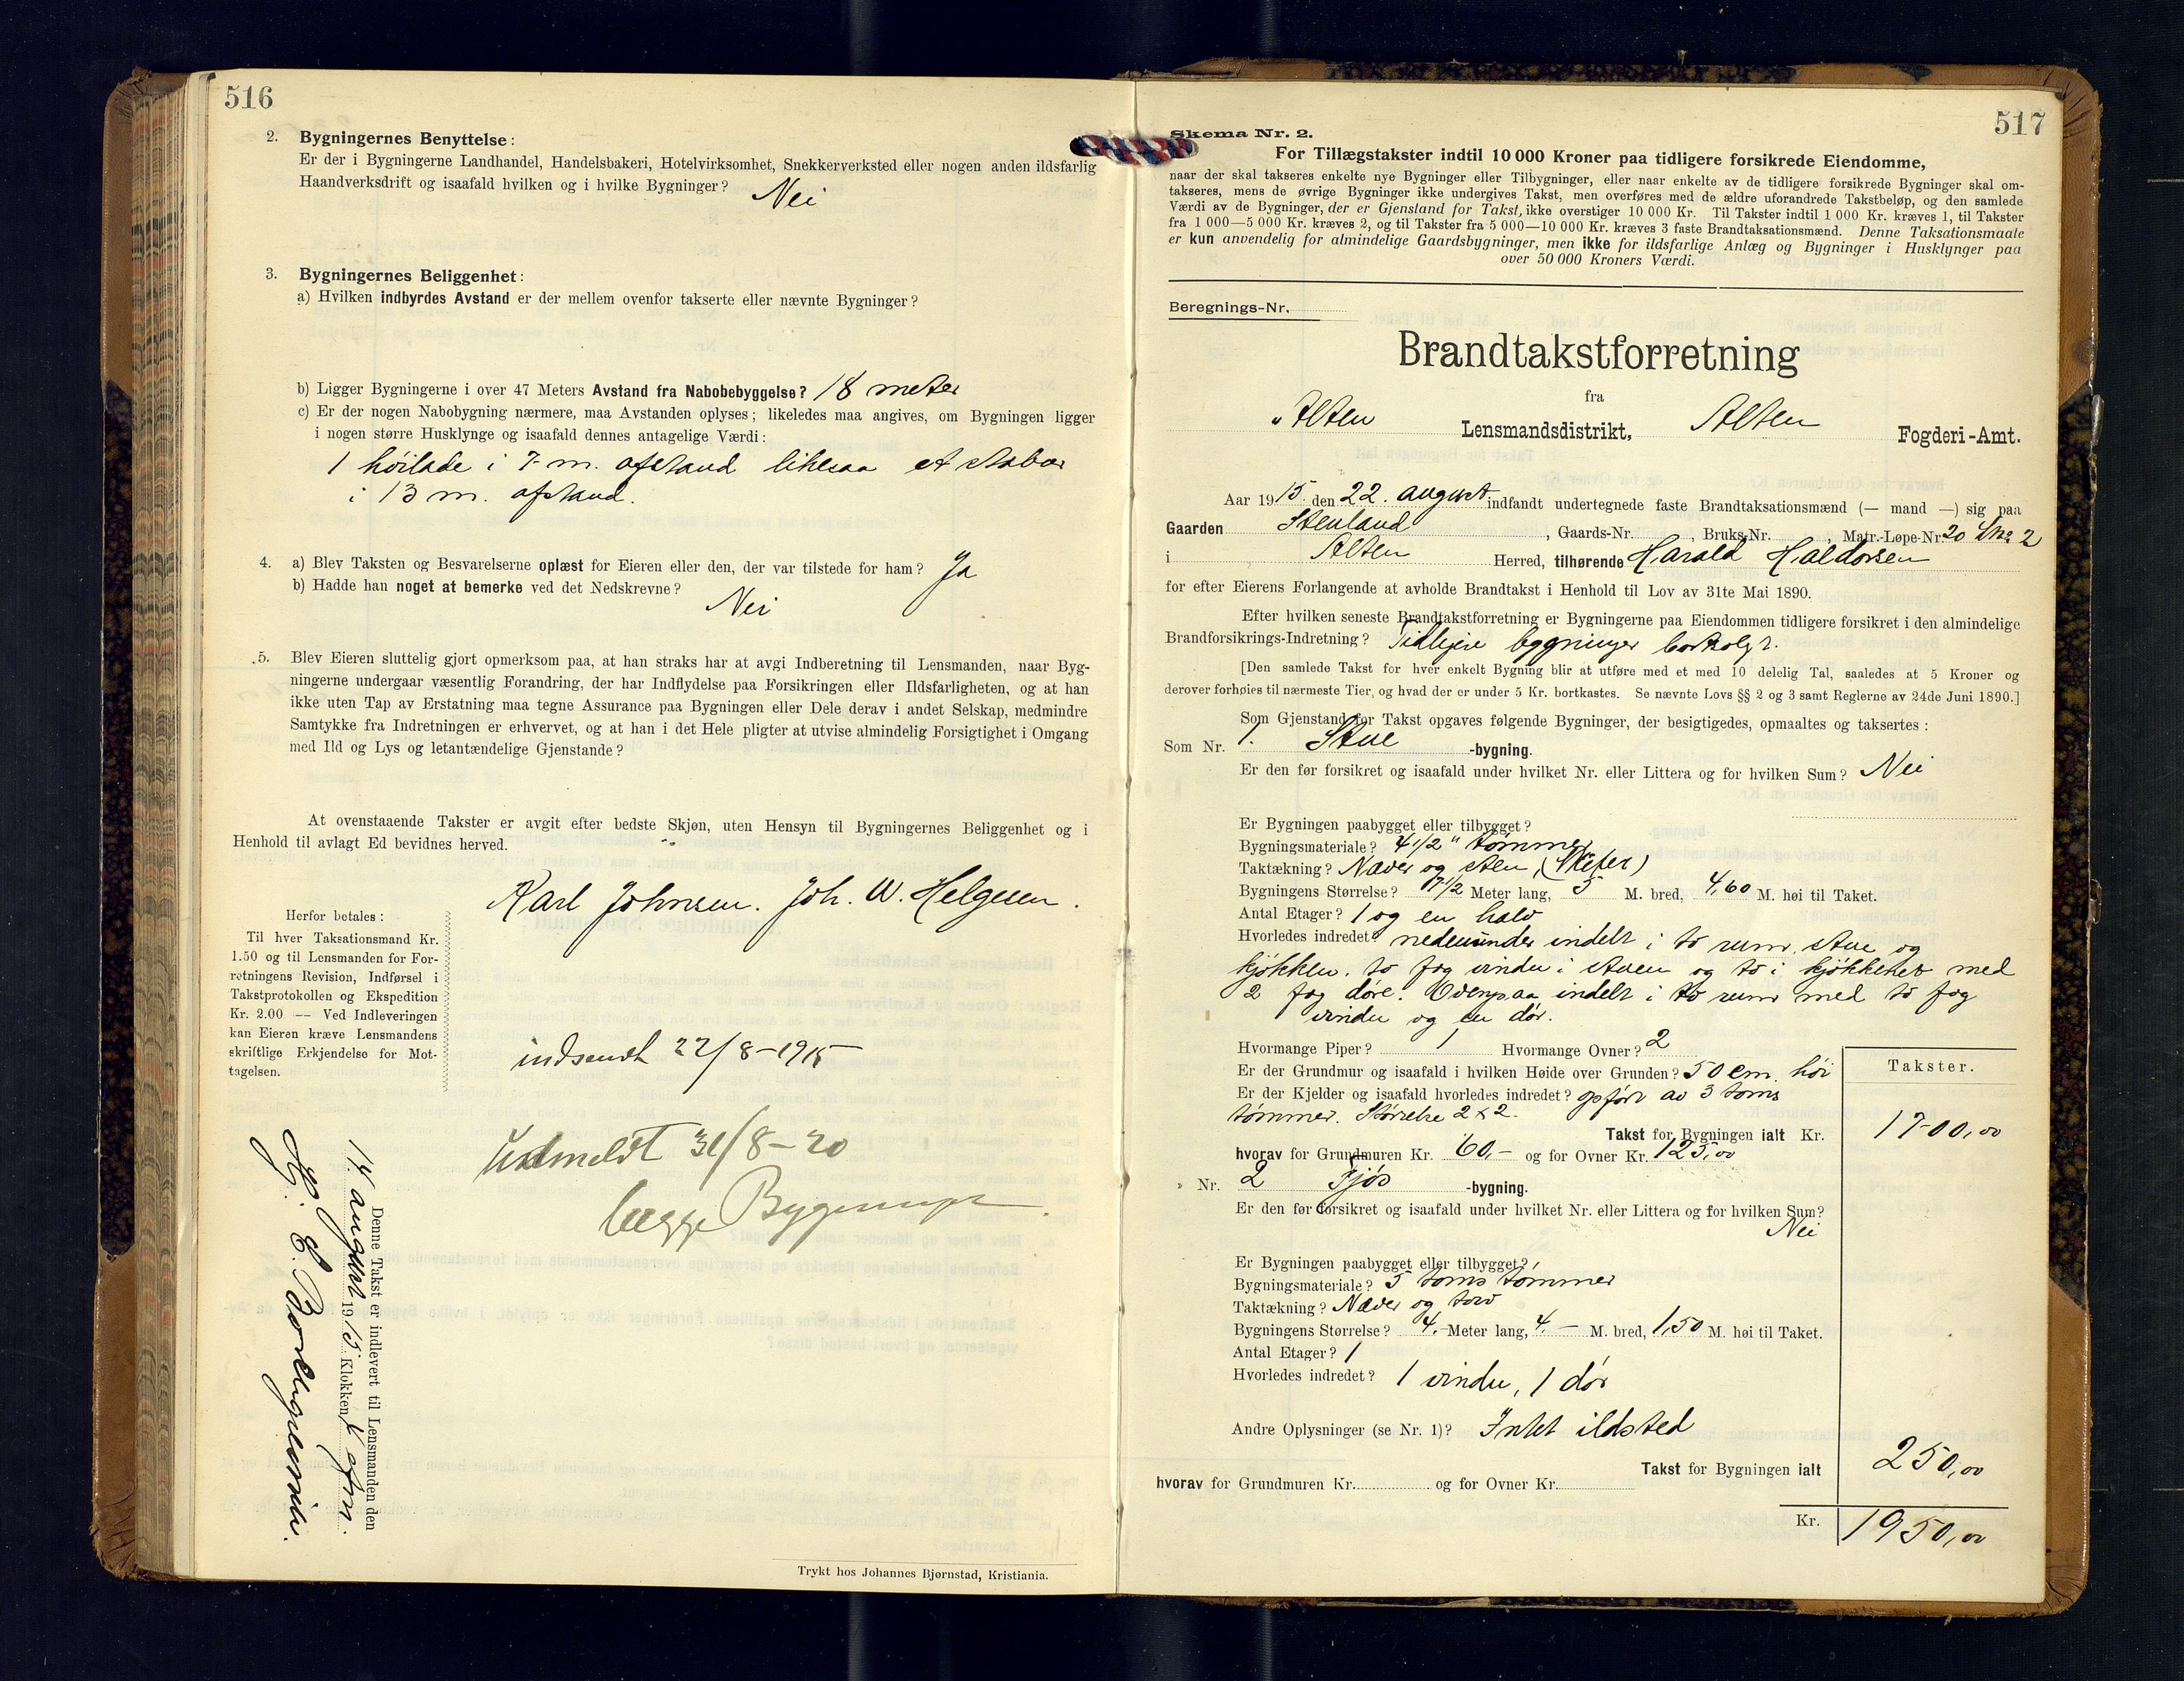 516
2. Bygningernes Benyttelse:
Er der i Bygningerne Landhandel, Handelsbakeri, Hotelvirksomhet, Snekkerverksted eller nogen anden ildsfarlig
Haandverksdrift og isaafald hvilken og i hvilke Bygninger? Nei
3. Bygningernes Beliggenhet:
a) Hvilken indbyrdes Avstand er der mellem ovenfor takserte eller nævnte Bygninger?
b) Ligger Bygningerne i over 47 Meters Avstand fra Nabobebyggelse? 18 meter
c) Er der nogen Nabobygning nærmere, maa Avstanden oplyses; likeledes maa angives, om Bygningen ligger
i nogen større Husklynge og isaafald dennes antagelige Værdi:
1 höilade i 7 m. afstand likesaa et stabur
i 13 m. afstand.
4. a) Blev Taksten og Besvarelserne oplæst for Eieren eller den, der var tilstede for ham? Ja
b) Hadde han noget at bemerke ved det Nedskrevne?
Nei
5. Blev Eieren sluttelig gjort opmerksom paa, at han straks har at avgi Indberetning til Lensmanden, naar Byg-
ningerne undergaar væsentlig Forandring, der har Indflydelse paa Forsikringen eller Ildsfarligheten, og at han
ikke uten Tap av Erstatning maa tegne Assurance paa Bygningen eller Dele derav i andet Selskap, medmindre
Samtykke fra Indretningen er erhvervet, og at han i det Hele pligter at utvise almindelig Forsigtighet i Omgang
med Ild og Lys og letantændelige Gjenstande?
At ovenstaaende Takster er avgit efter bedste Skjøn, uten Hensyn til Bygningernes Beliggenhet og i
Henhold til avlagt Ed bevidnes herved.
Karl Johnsen. Joh. W. Helgesen.
Herfor betales:
Til hver Taksationsmand Kr.
1.50 og til Lensmanden for For-
retningens Revision, Indførsel i
Takstprotokollen og Ekspedition
Kr. 2.00 — Ved Indleveringen
kan Eieren kræve Lensmandens
skriftlige Erkjendelse for Mot-
tagelsen.
indsendt 22/8-1915
Udmeldt 31/8-20
begge Bygninger
Denne Takst er indlevert til Lensmanden den
14. august 1915 Klokken efm.
Trykt hos Johannes Bjørnstad, Kristiania.
517
Skema Nr. 2.
For Tillægstakster indtil 10 000 Kroner paa tidligere forsikrede Eiendomme,
naar der skal takseres enkelte nye Bygninger eller Tilbygninger, eller naar enkelte av de tidligere forsikrede Bygninger skal om-
takseres, mens de øvrige Bygninger ikke undergives Takst, men overføres med de ældre uforandrede Takstbeløp, og den samlede
Værdi av de Bygninger, der er Gjenstand for Takst, ikke overstiger 10 000 Kr. Til Takster indtil 1 000 Kr. kræves 1, til Takster
fra 1 000—5 000 Kr. kræves 2, og til Takster fra 5 000—10 000 Kr. kræves 3 faste Brandtaksationsmænd. Denne Taksationsmaate
er kun anvendelig for almindelige Gaardsbygninger, men ikke for ildsfarlige Anlæg og Bygninger i Husklynger paa
over 50 000 Kroners Værdi.
Beregnings-Nr.
Brandtakstforretning
fra
Alten Lensmandsdistrikt, Alten Fogderi-Amt.
Aar 1915 den 22. august indfandt undertegnede faste Brandtaksationsmænd (— mand —) sig paa
Gaarden Stenland, Gaards-Nr. , Bruks-Nr. , Matr.-Løpe-Nr. 20 Lnr 2
i Alten Herred, tilhørende Harald Haldorsen
for efter Eierens Forlangende at avholde Brandtakst i Henhold til Lov av 31te Mai 1890.
Efter hvilken seneste Brandtakstforretning er Bygningerne paa Eiendommen tidligere forsikret i den almindelige
Brandforsikrings-Indretning? Tidligere bygninger bortsolgt.
[Den samlede Takst for hver enkelt Bygning blir at utføre med et med 10 delelig Tal, saaledes at 5 Kroner og
derover forhøies til nærmeste Tier, og hvad der er under 5 Kr. bortkastes. Se nævnte Lovs §§ 2 og 3 samt Reglerne av 24de Juni 1890.]
Som Gjenstand for Takst opgaves følgende Bygninger, der besigtigedes, opmaaltes og taksertes:
Som Nr. 1. Stue -bygning.
Er den før forsikret og isaafald under hvilket Nr. eller Littera og for hvilken Sum? Nei
Er Bygningen paabygget eller tilbygget?
Bygningsmateriale? 4 1/2 " tømmer
Taktækning? Næver og sten, (Skifer)
Bygningens Størrelse? 7 1/2 Meter lang, 5 M. bred, 4,60 M. høi til Taket.
Antal Etager? 1 og en halv
Hvorledes indredet? nedenunder indelt i to rum, stue og
kjøkken. to fag vindu i stuen og to i kjøkkenet med
2 fag døre. Ovenpaa indelt i to rum med to fag
vindu og en dør.
Hvormange Piper? 1 Hvormange Ovner? 2
Er der Grundmur og isaafald i hvilken Høide over Grunden? 50 cm. høi
Er der Kjelder og isaafald hvorledes indredet? opført av 3 toms
tømmer. Størrelse 2 x 2.
Takster.
Takst for Bygningen ialt Kr. 1700,00
hvorav for Grundmuren Kr. 60,- og for Ovner Kr. 125,00
Nr. 2 Fjøs -bygning.
Er den før forsikret og isaafald under hvilket Nr. eller Littera og for hvilken Sum?
Nei
Er Bygningen paabygget eller tilbygget?
Bygningsmateriale? 5 toms tømmer
Taktækning? Næver og torv
Bygningens Størrelse? 4.- Meter lang, 4.- M. bred, 1,50 M. høi til Taket.
Antal Etager? 1
Hvorledes indredet? 1 vindu, 1 dør
Andre Oplysninger (se Nr. 1)? Intet ildsted
Takst for Bygningen ialt 250,00
hvorav for Grundmuren Kr. og for Ovner Kr.
Kr. 1950,00